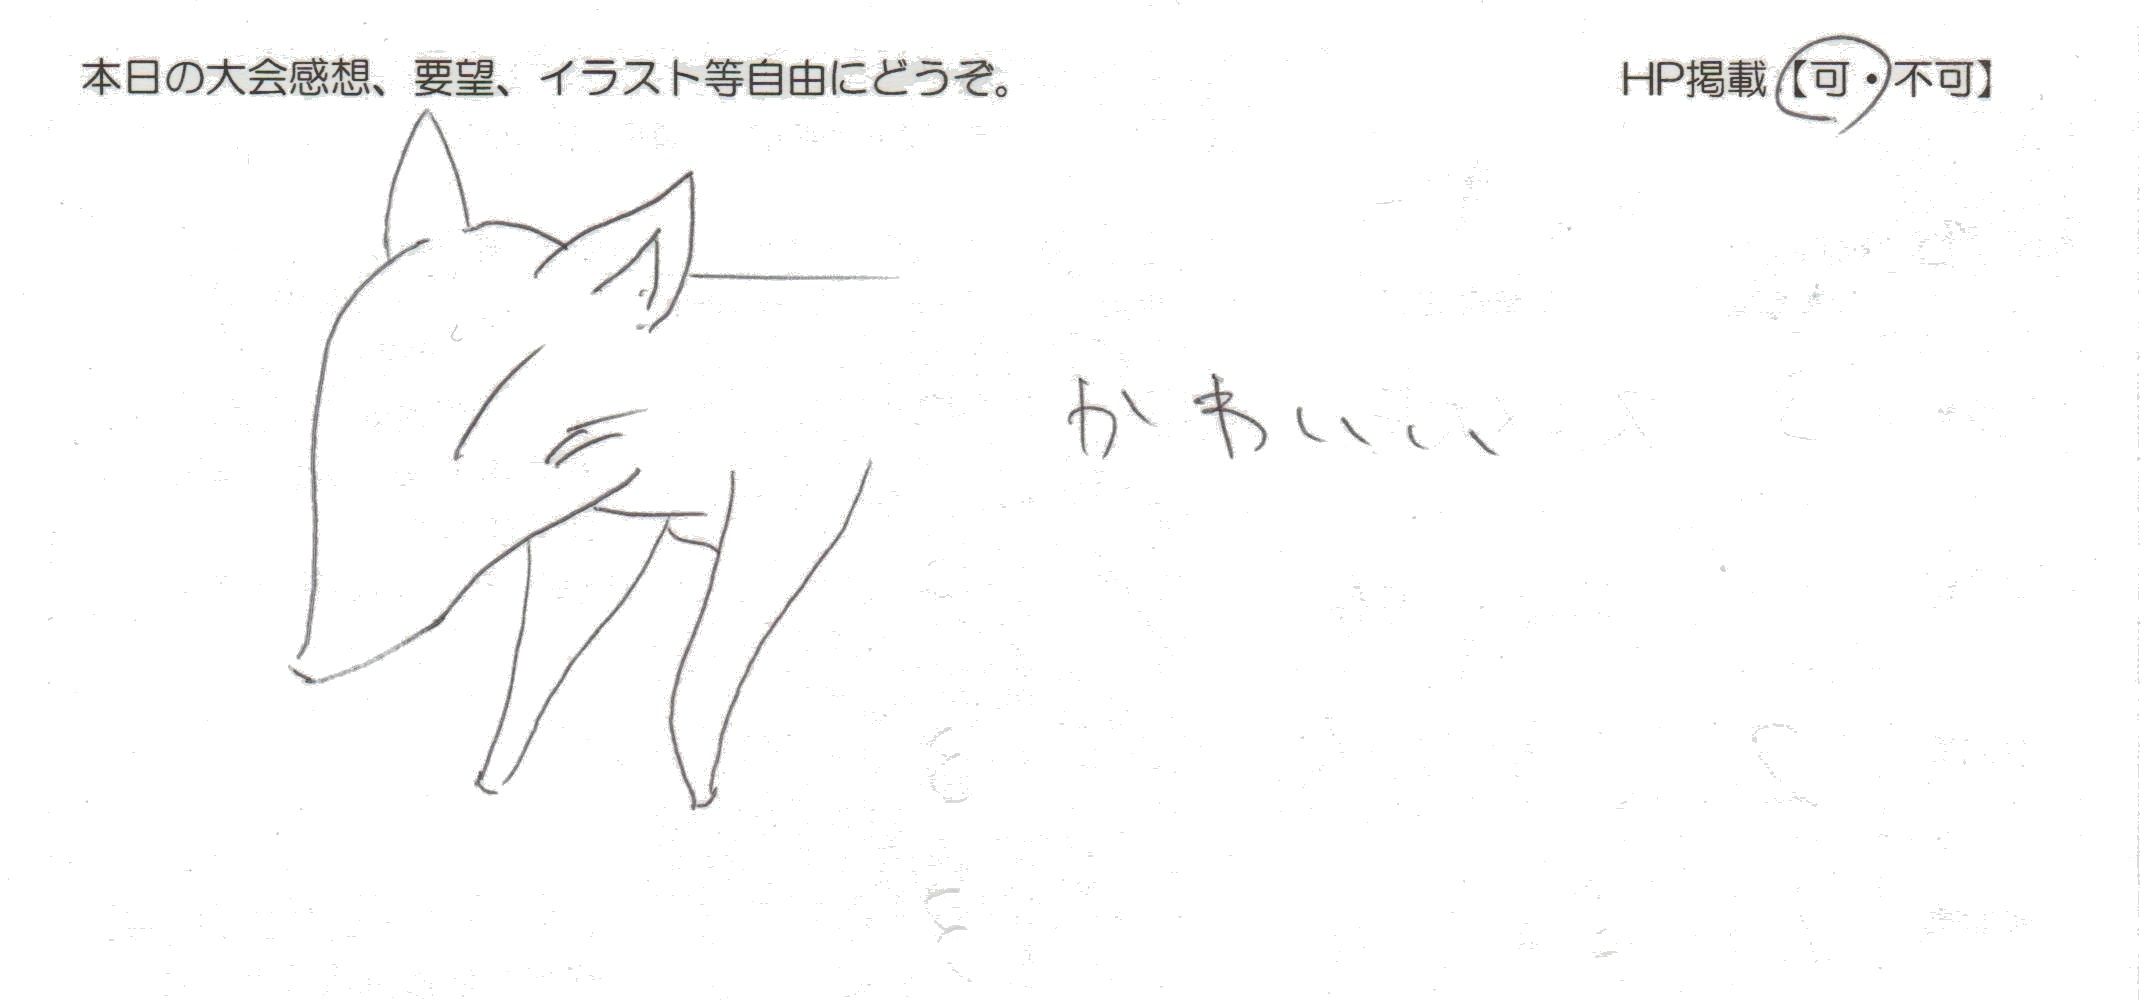 本日の大会感想、要望、イラスト等自由にどうぞ。
HP掲載【可・不可】
かわいい